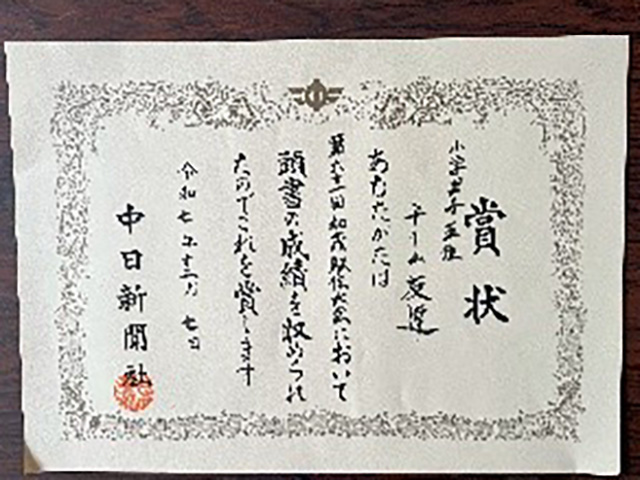 賞状
小学男子五位
チーム友遊
あなたがたは
第六十一回知茂駅伝大会において
頭書の成績を収められ
たのでこれを賞します
令和七年十二月七日
中日新聞社